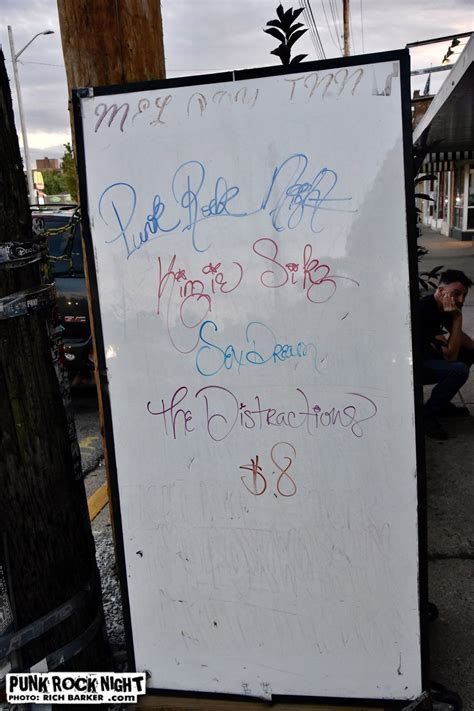 MELODY INN
Punk Rock Night
Kinzie
Sex Dream
the Distractions
$8
PUNK ROCK NIGHT
PHOTO: RICH BARKER .com